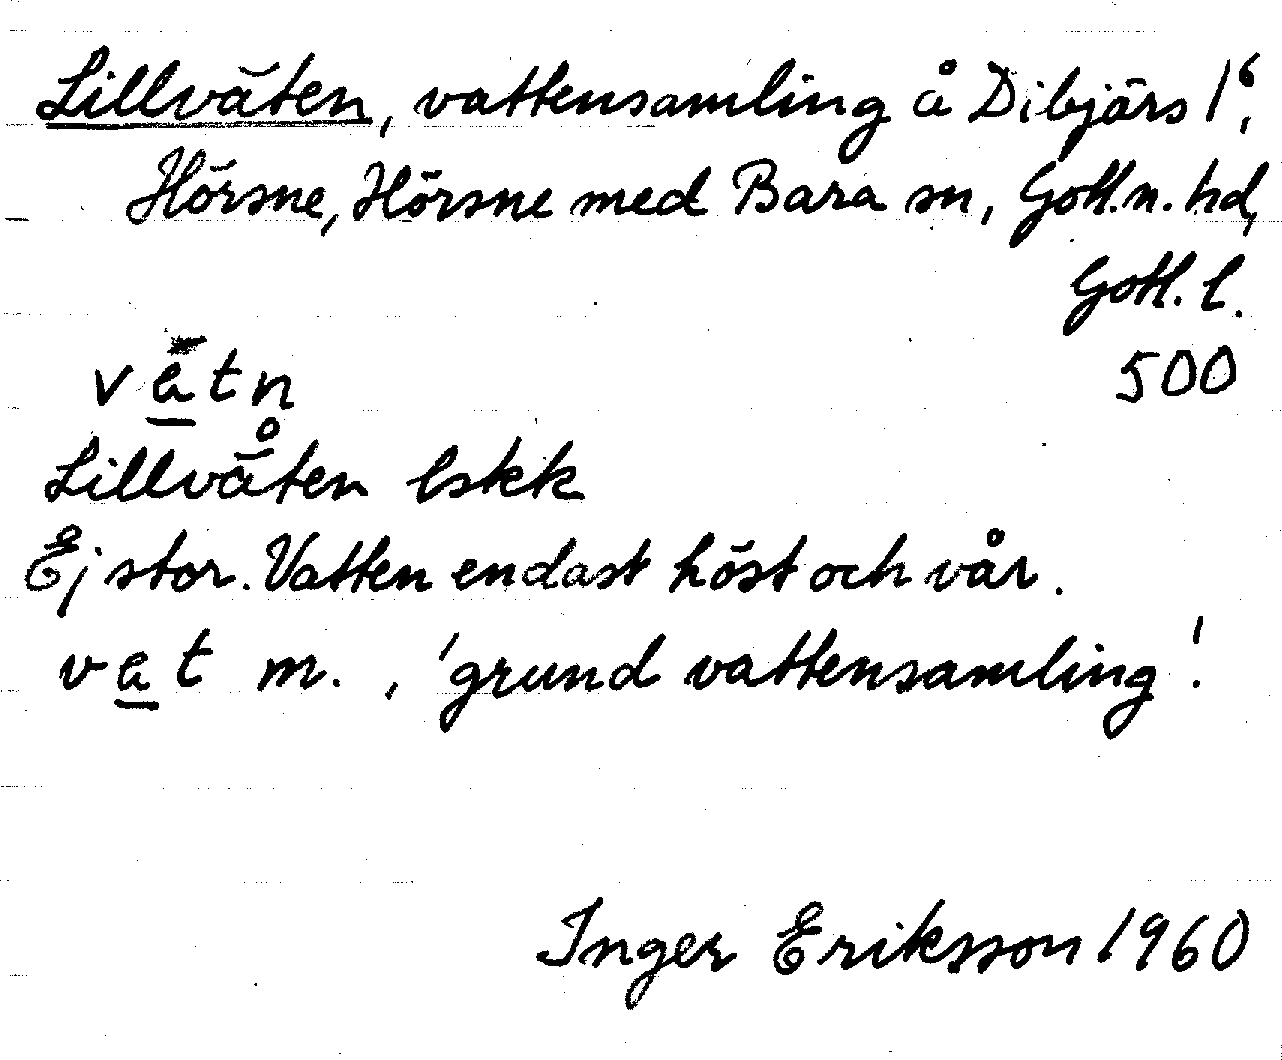 Lillväten, vattensamling å Dibjärs 1⁶,
Hörsne, Hörsne med Bara sn, Gotl. n. hd,
Gotl. l.
500
Lillvåten lskk
Ej stor. Vatten endast höst och vår.
vat m., 'grund vattensamling'.
Inger Eriksson 1960